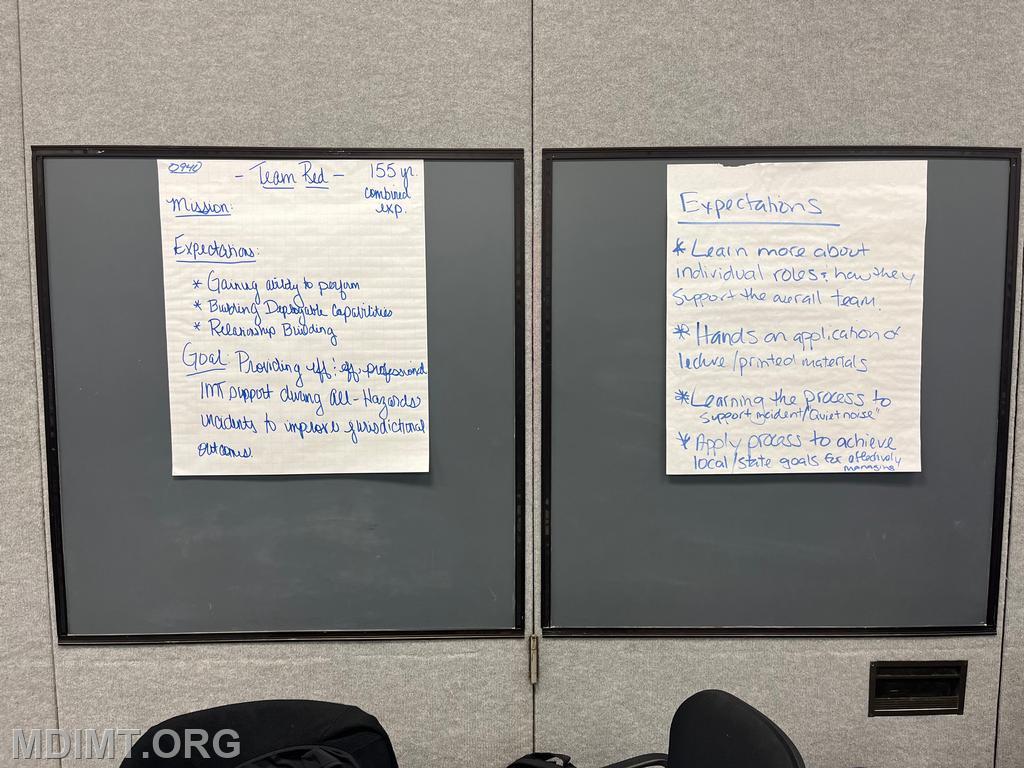 0940
- Team Red -
155 yr.
combined
exp.
Mission:
Expectations:
* Gaining ability to perform
* Building Deployable Capabilities
* Relationship Building
Goal: Providing eff : eff professional
IMT support during All-Hazards
incidents to improve jurisdictional
outcomes.
Expectations
* Learn more about
individual roles & how they
support the overall team.
* Hands on application of
lecture/printed materials
* Learning the process to
support incident/"Quiet noise"
* Apply process to achieve
local/state goals for effectively
managing
MDIMT.ORG